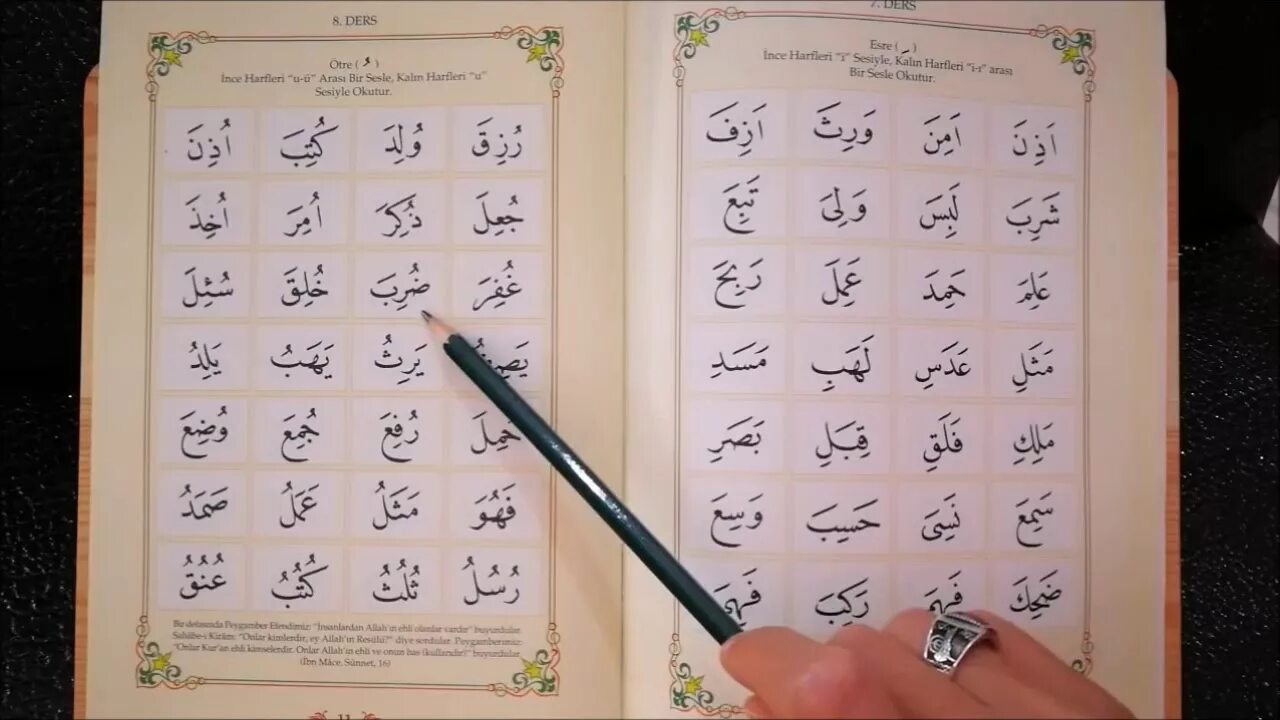 7. DERS
Esre ( ِ )
İnce Harfleri "i" Sesiyle, Kalın Harfleri "i-ı" arası
Bir Sesle Okutur.
اَذِنَ اَمِنَ وَرِثَ اَزِفَ
شَرِبَ لَبِسَ وَلِىَ تَبِعَ
عَلِمَ حَمِدَ عَمِلَ رَبِحَ
مَثَلِ عَدَسِ لَهَبِ مَسَدِ
مَلِكِ فَلَقِ قِبَلِ بَصَرِ
سَمِعَ نَسِىَ حَسِبَ وَسِعَ
ضَحِكَ رَكِبَ
8. DERS
Ötre ( ُ )
İnce Harfleri "u-ü" Arası Bir Sesle, Kalın Harfleri "u"
Sesiyle Okutur.
رُزِقَ وُلِدَ كُتِبَ اُذِنَ
جُعِلَ ذُكِرَ اُمِرَ اُخِذَ
غُفِرَ ضُرِبَ خُلِقَ سُئِلَ
يَرِثُ يَهَبُ يَلِدُ
حُمِلَ رُفِعَ جُمِعَ وُضِعَ
فَهُوَ مَثَلُ عَمَلُ صَمَدُ
رُسُلُ ثُلُثُ كُتُبُ عُنُقُ
Bir defasında Peygamber Efendimiz: "İnsanlardan Allah'ın ehli olanlar vardır" buyurdular.
Sahâbe-i Kirâm: "Onlar kimlerdir, ey Allah'ın Resûlü?" diye sordular. Peygamberimiz:
"Onlar Kur'an ehli kimselerdir. Onlar Allah'ın ehli ve onun has (kullarıdır)" buyurdular.
(İbn Mâce, Sünnet, 16)
11